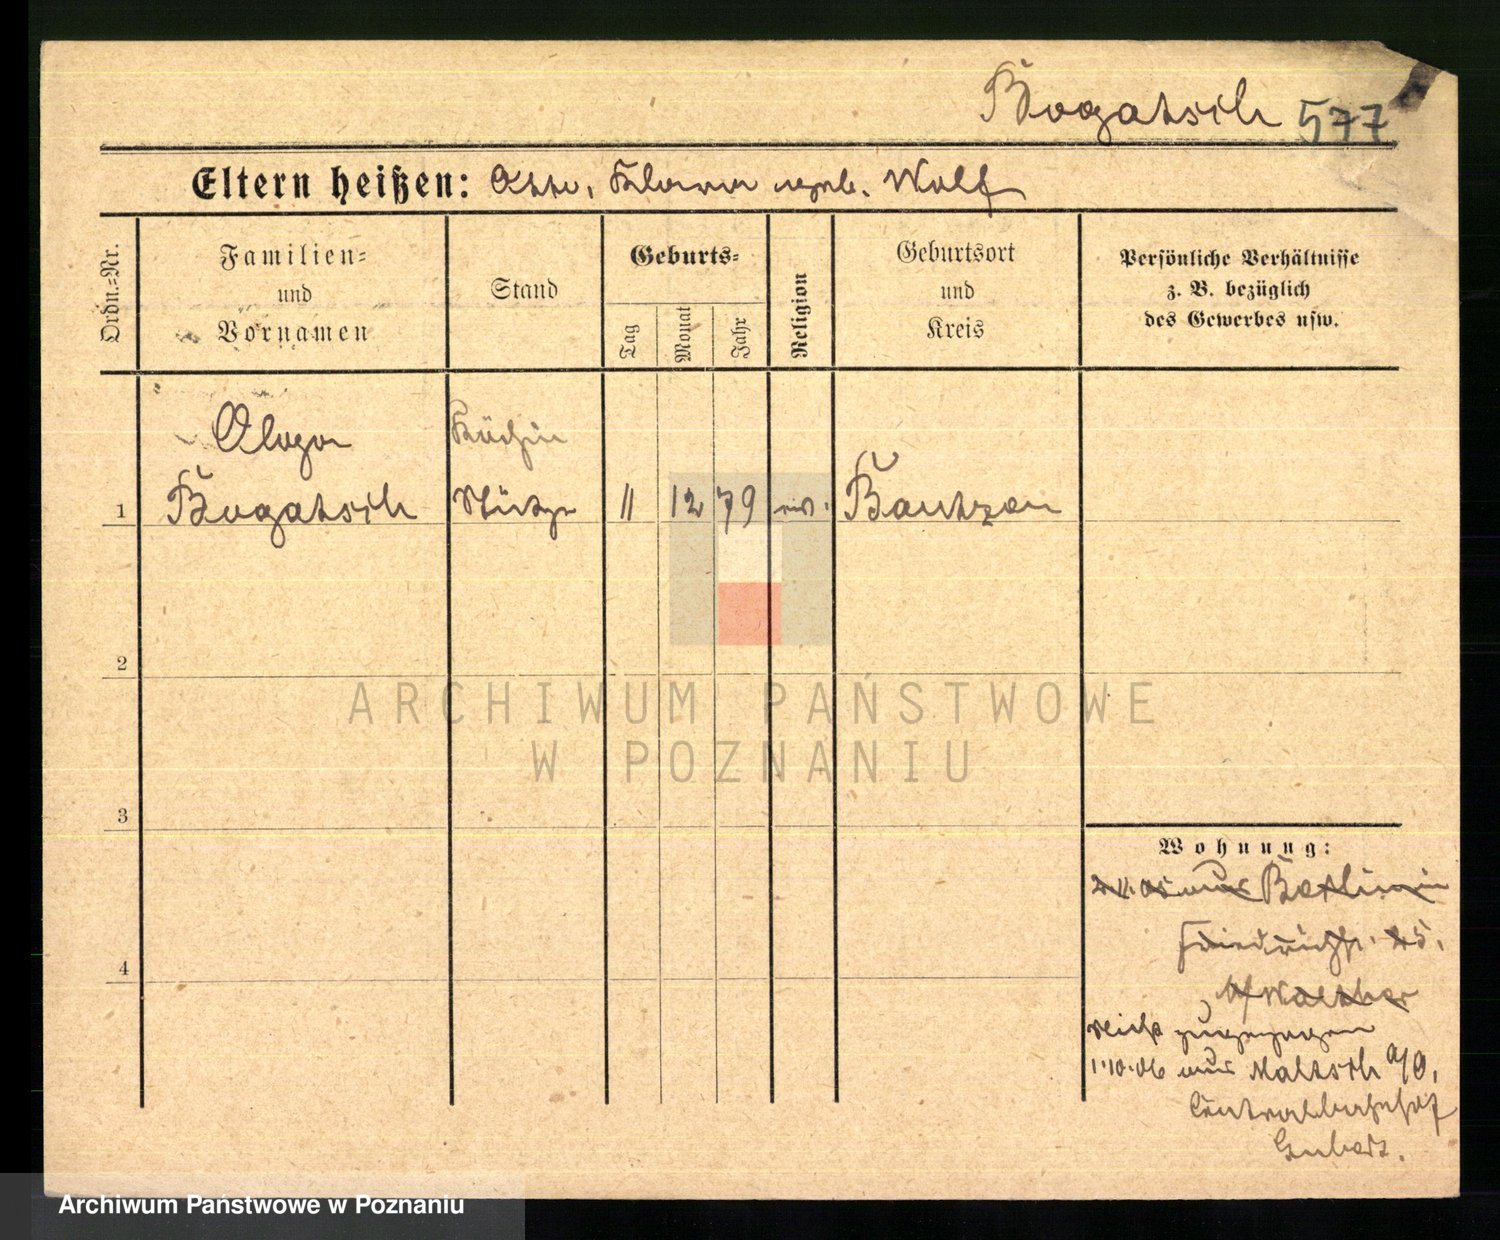 Bogatsch 577
Eltern heißen: Otto, Klara geb. Wolf
Ordn.-Nr.
Familien-
und
Vornamen
Stand
Geburts-
Tag
Monat
Jahr
Religion
Geburtsort
und
Kreis
Persönliche Verhältnisse
z. B. bezüglich
des Gewerbes usw.
Olga Köchin
1 Bogatsch Stütze 11 12 79 Bautzen
2
3
4
ARCHIWUM PAŃSTWOWE
W POZNANIU
Wohnung:
aus Berlin
Friedrichstr. 25.
b/ Walther
nicht zugezogen
1.10.06 aus Maltsch a/O,
Centralbahnhof
Archiwum Państwowe w Poznaniu